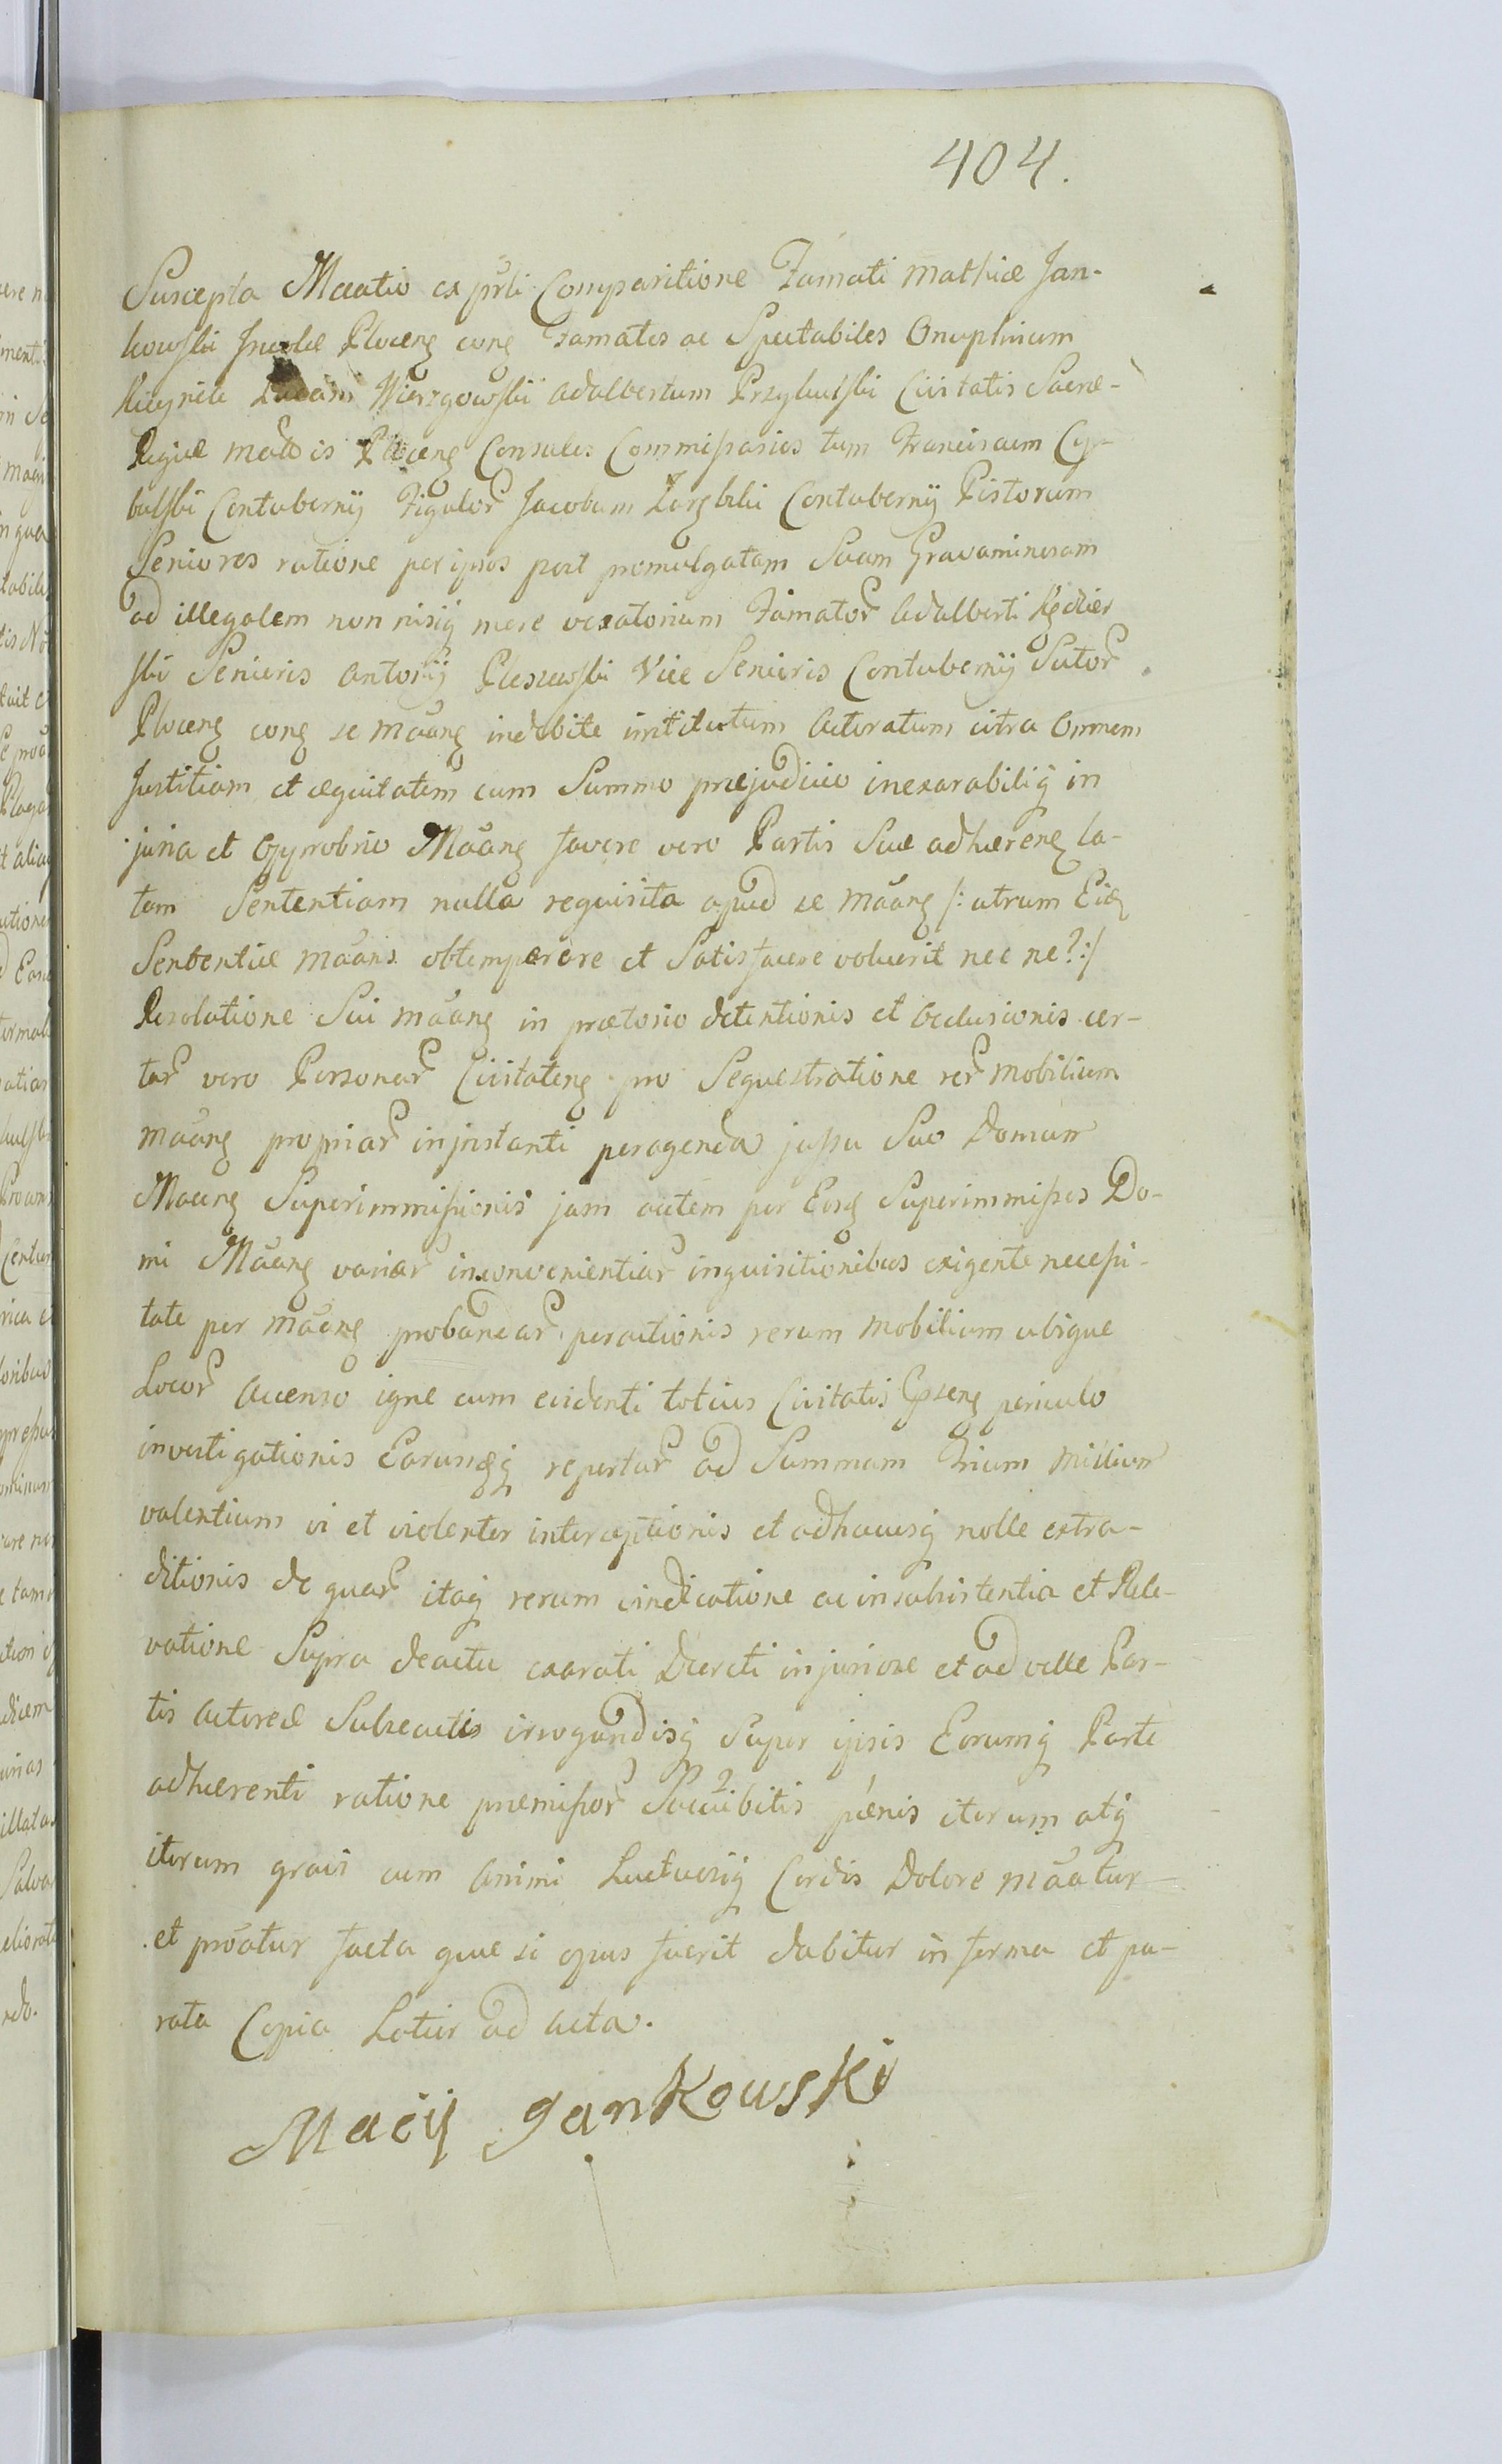 404.
Suscepta Maatio ex prli Comparitione Famati Mathiæ Jan-
kowski Incolæ Ploceng cong Famatos ac Spectabiles Onuphrium
Adamum Wierzgowski Adalbertum Przybulski Civitatis Sacræ-
Regiæ Mattis Ploceng Consules Commissarios tum Franciscum Cy-
bulski Contubernij Figulor Jacobum Contubernij Pistorum
Seniores ratione per ipsos post promulgatam Suam Gravaminosam
ad illegalem non nisiq mere vexatorium Famator Adalberti Kędzier
ski Senioris Antonij Pleszewski Vice Senioris Contubernij Sutor
Ploceng cong se Maang indebite institutum Actoratum citra Omnem
Justitiam et æquitatem cum Summo præjudicio inexarabiliq in
juria et Opprobrio Maang favore vero Partis Suæ adhæreng la-
tam Sententiam nulla requisita apud se Maang /: utrum Eidg
Sententiæ Maans obtemperere et Satisfacere voluerit nec ne? :/
Resolutione Sui Maang in prætorio detentionis et Occlusionis cer-
tar vero Personar Civitateng pro Sequestratione rer Mobilium
Maang propriar in instanti peragenda jussu Suo Domum
Maang Superimmissionis jam autem per Eosg Superimmissos Do-
mi Maang variar inconvenientiar inquisitionibus exigente necessi-
tate per Maang probandar peractionis rerum Mobilium ubique
Locor Accenso igne cum evidenti totius Civitatis Ipseng periculo
investigationis Earundq repertar ad Summam Trium Millium
valentium vi et violenter interceptionis et adhucusq nolle extra-
ditionis de quar itaq rerum vindicatione ac in subsistentia et Rele-
vatione Supra deactu exarati Decreti injuriose et ad velle Par-
tis Actoreæ Subsecutis irrogandisq Super ipsis Eorumq Parte
adhærenti ratione præmissor Succubitis pænis iterum atq
iterum gravi cum Animi Luctuosiq Cordis Dolore Maatur
et proatur facta quæ si opus fuerit dabitur in forma et pa-
rata Copia Latius ad Acta.
Maciy Jankowski